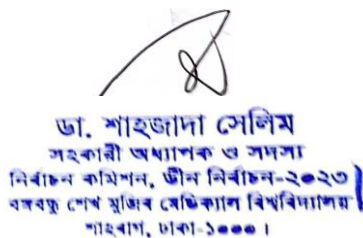 ডা. শাহজাদা সেলিম
সহকারী অধ্যাপক ও সদস্য
নির্বাচন কমিশন, ডীন নির্বাচন-২০২৩
বঙ্গবন্ধু শেখ মুজিব মেডিক্যাল বিশ্ববিদ্যালয়
শাহবাগ, ঢাকা-১০০০।